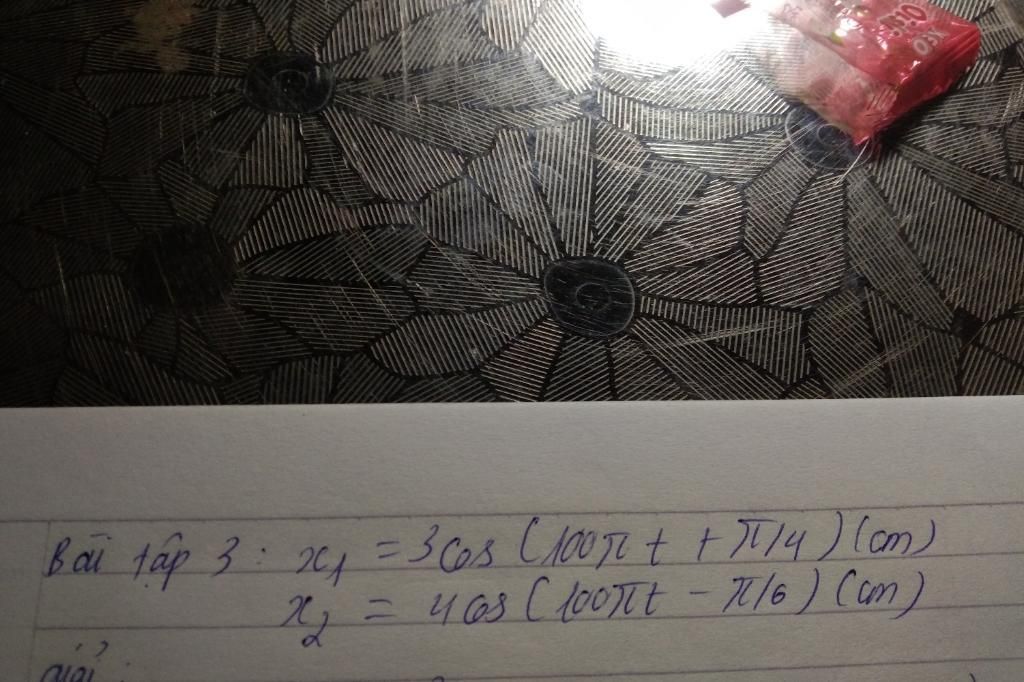 Bài tập 3: x₁ = 3cos(100πt + π/4)(cm)
x₂ = 4cos(100πt - π/6)(cm)
giải: